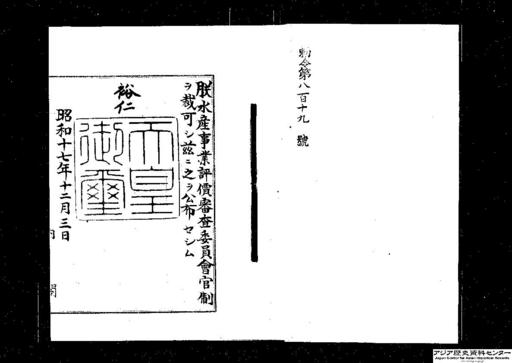 勅令第八百十九號
朕水産事業評價審査委員會官制
ヲ裁可シ玆ニ之ヲ公布セシム
裕仁
天皇御璽
昭和十七年十二月三日
内閣
アジア歴史資料センター
Japan Center for Asian Historical Records